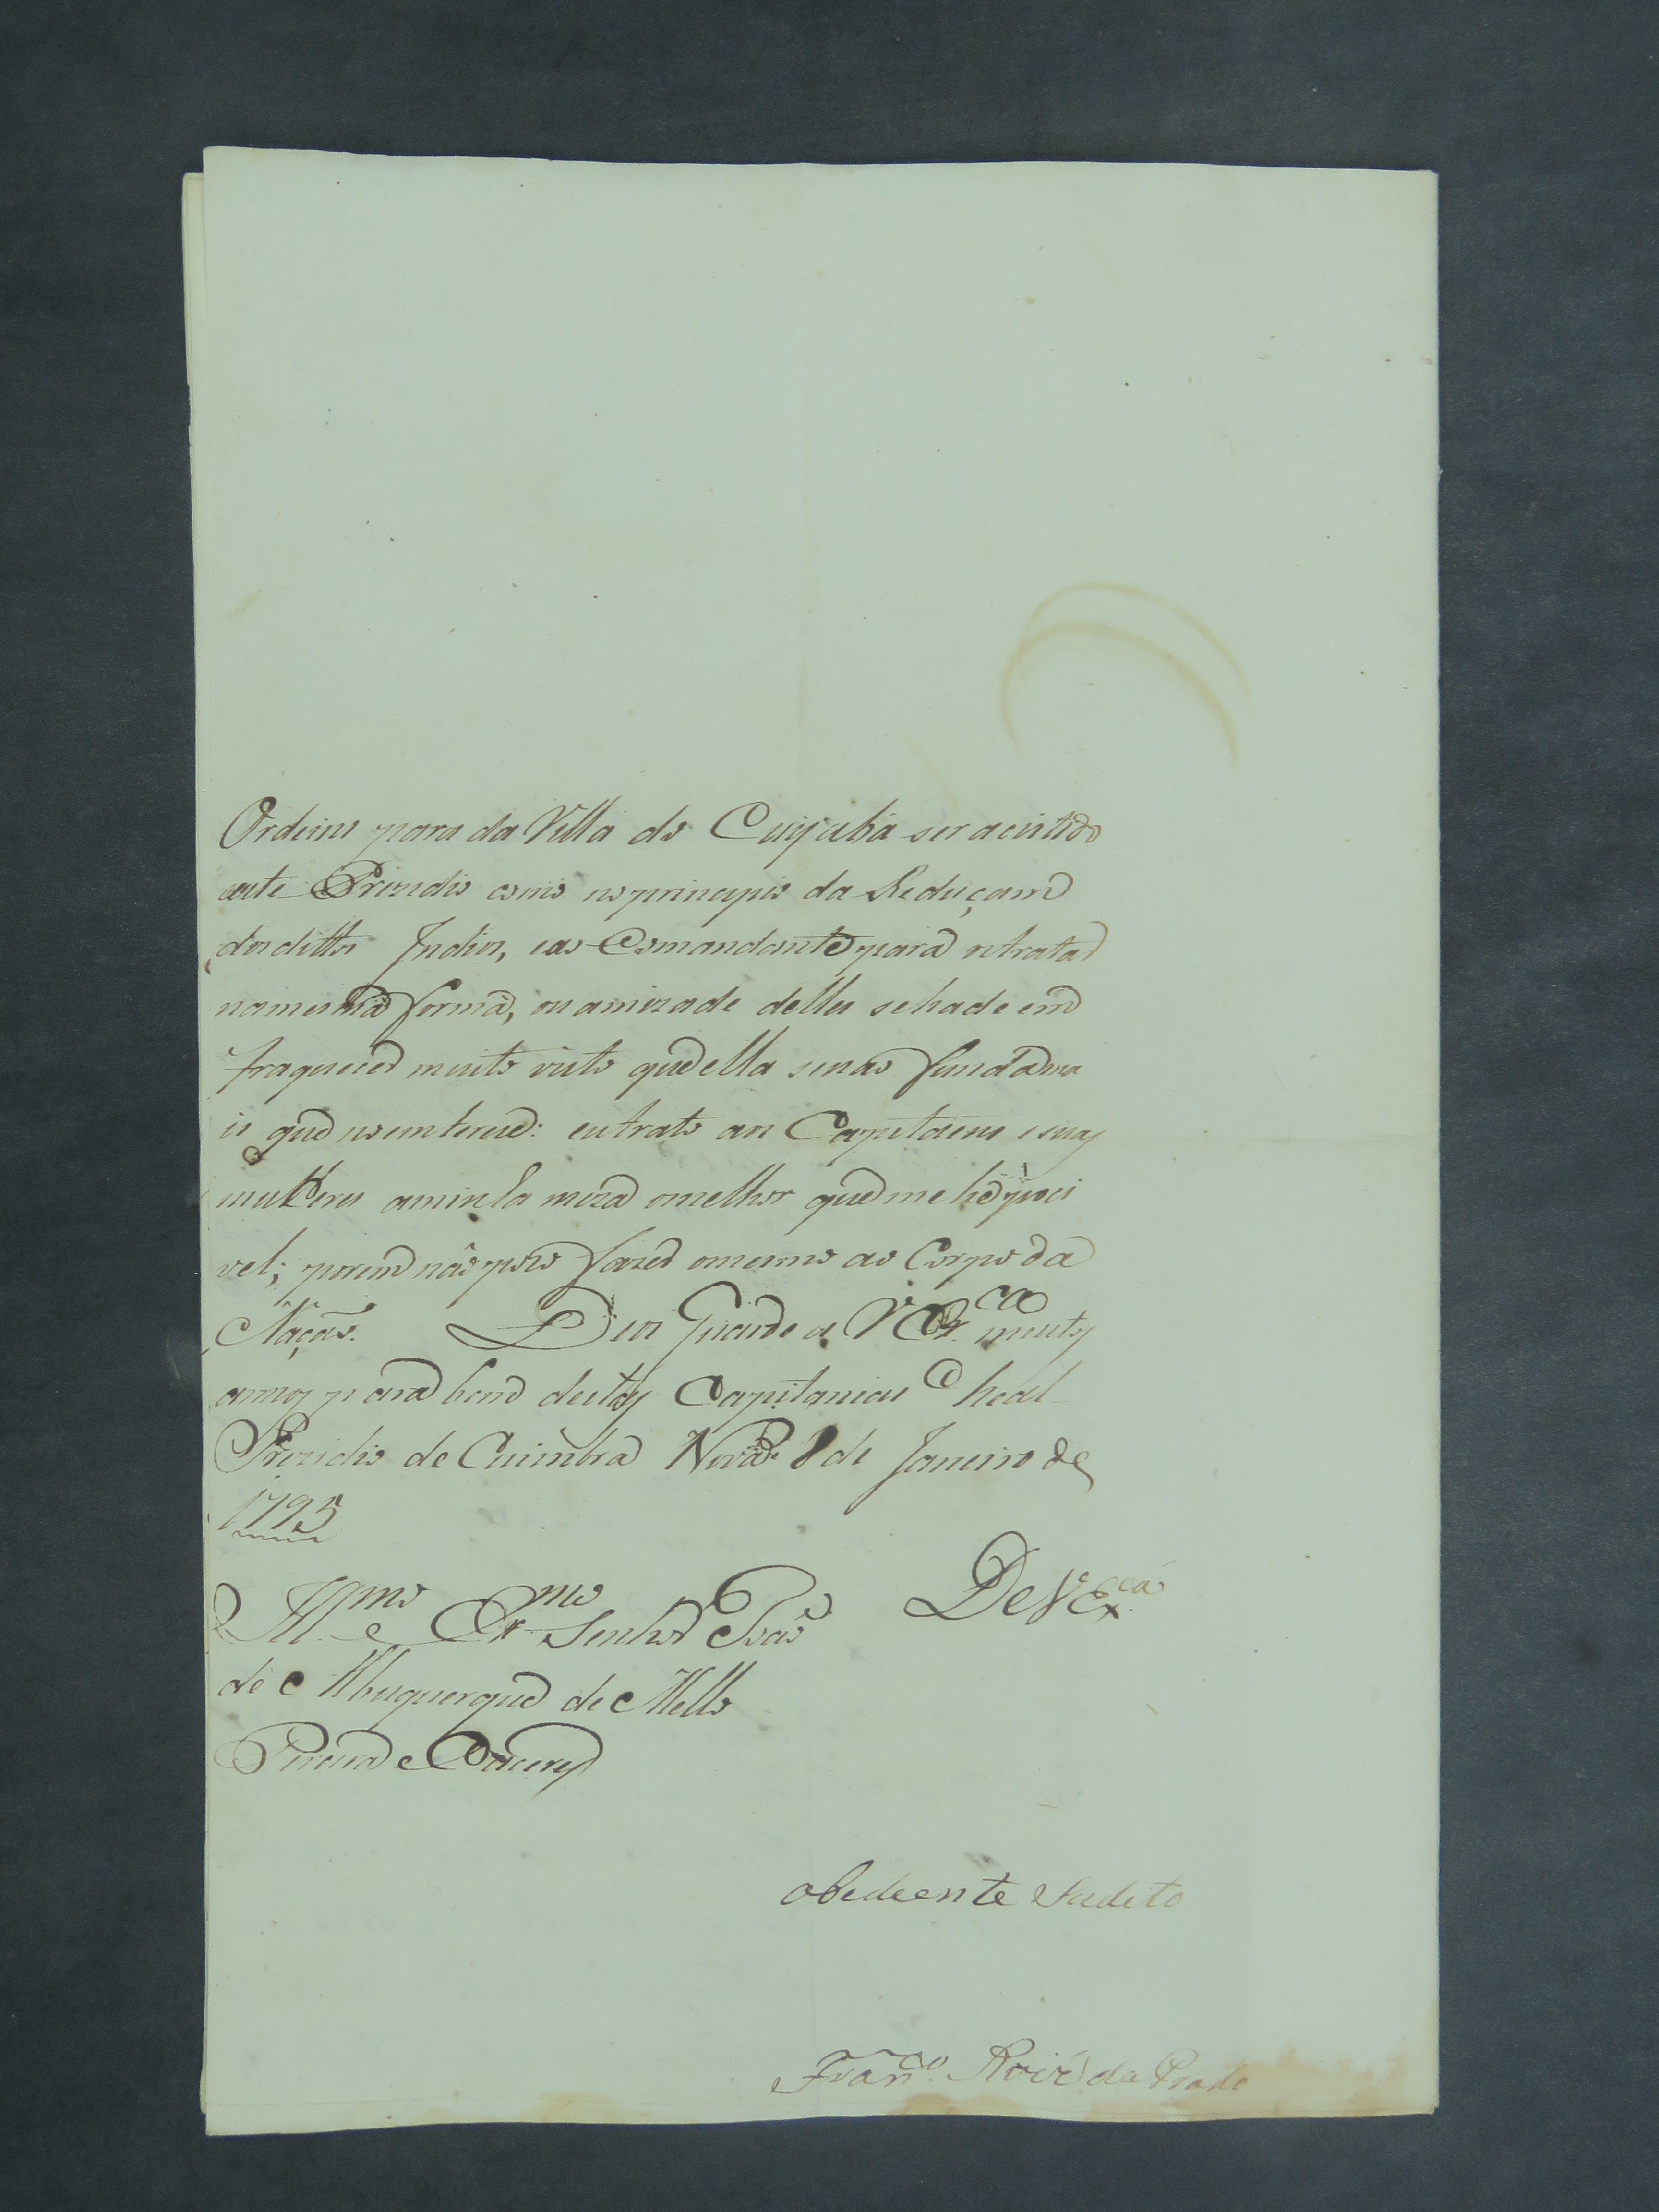 Ordeins para da Villa do Cuyabá ser acistido
este Prezidio como no principio da Reduçam
dos dittos Indios, eao Comandante para ostratar
namesma forma, ou amizade delles sehade em
fraquecer muito visto que ella senaó funda ma
is que no emterece: eu trato aos Capitaens e suas
mulheres aminha meza omelhor que me hé poci
vel; porem não poso fazer omesmo ao Corpo da
Naçaó. Deos Guarde a V Ex.ca muitos
annos para bem destas Capitanias Real
Prezidio de Cuimbra Nova 8 de Janeiro de
1795
Ill.mo e Ex.mo Senhor Joaó De V Ex.ca
de Albuquerque de Mello
Pereira e Caceres
obedeente Sudito
Fran.co Roiz do Prado